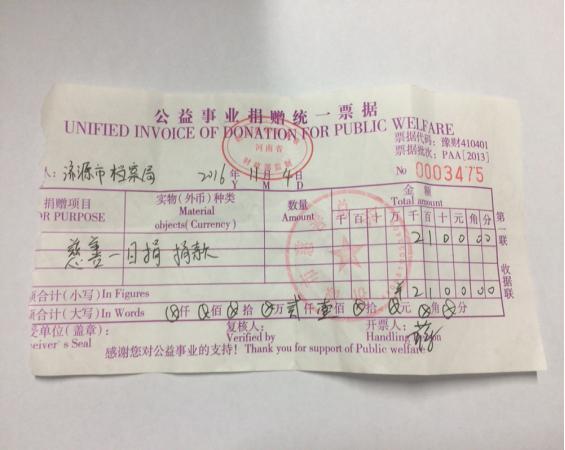 公益事业捐赠统一票据
UNIFIED INVOICE OF DONATION FOR PUBLIC WELFARE
河南省
财政部监制
票据代码：豫财410401
票据批次：PAA[2013]
人：济源市档案局 2016年 11月 4日
Y M D
No 0003475
捐赠项目 实物（外币）种类 数量 金额
OR PURPOSE Material Amount Total amount
objects(Currency) 千百十万千百十元角分 千百十万千百十元角分
慈善一日捐 捐款 210000
额合计（小写）In Figures ¥210000
额合计（大写）In Words ⊗仟⊗佰⊗拾⊗万贰仟壹佰⊗拾⊗元⊗角⊗分
受单位（盖章）： 复核人： 开票人：
ceiver's Seal Verified by Handling
感谢您对公益事业的支持！Thank you for support of Public welfare
第一联 收据联